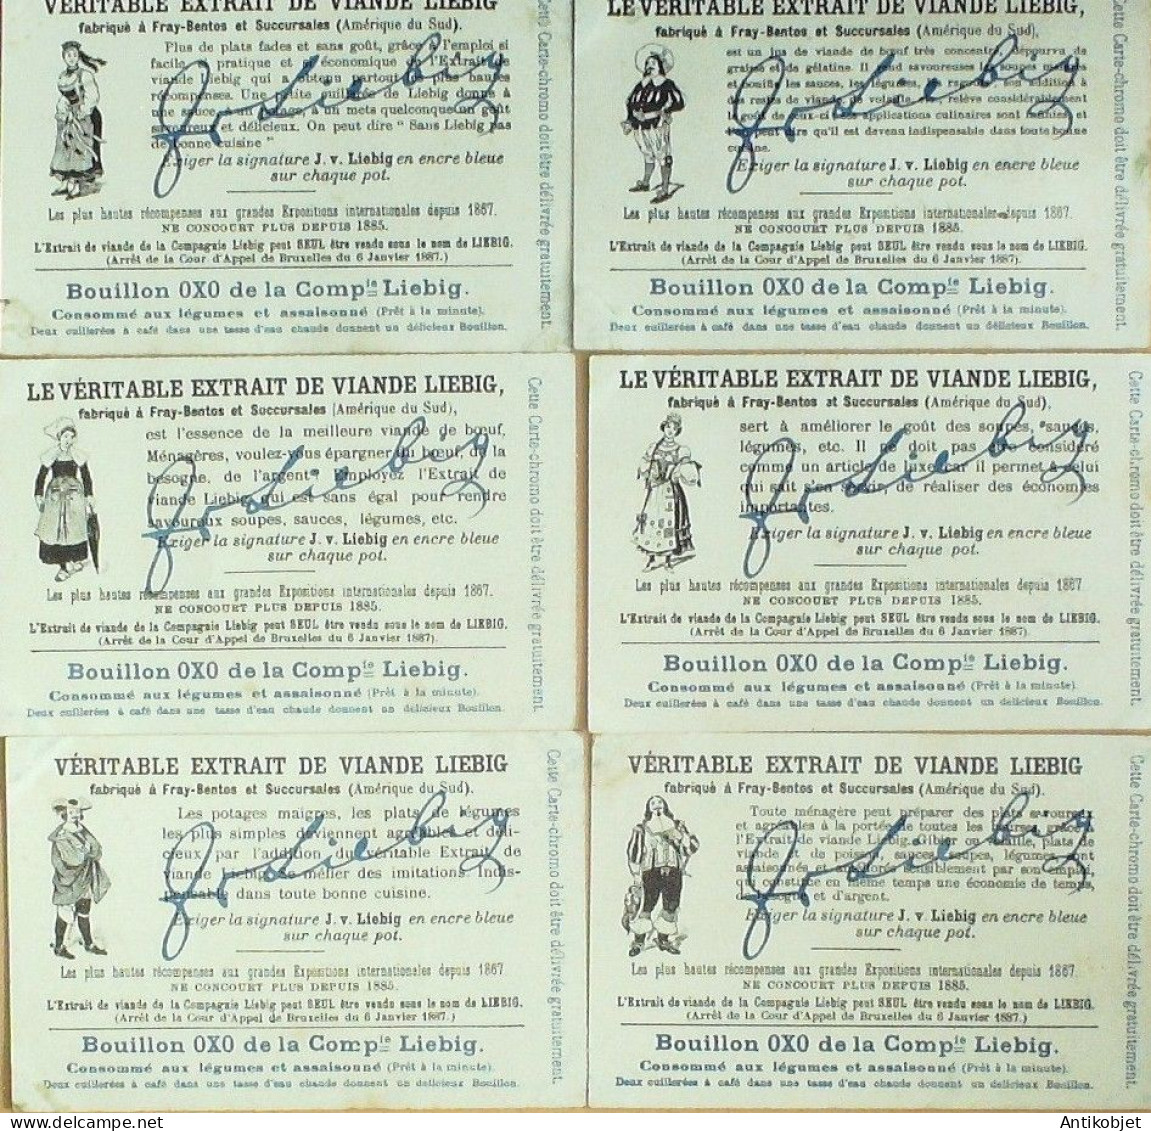 VÉRITABLE EXTRAIT DE VIANDE LIEBIG
fabriqué à Fray-Bentos et Succursales (Amérique du Sud).
Plus de plats fades et sans goût, grâce à l'emploi si
facile, pratique et économique de l'Extrait de
viande Liebig qui a obtenu partout les plus hautes
récompenses. Une petite cuillerée de Liebig donne à
une sauce, un potage, à un mets quelconque un goût
savoureux et délicieux. On peut dire " Sans Liebig pas
de bonne cuisine "
Exiger la signature J. v. Liebig en encre bleue
sur chaque pot.
Les plus hautes récompenses aux grandes Expositions internationales depuis 1867.
NE CONCOURT PLUS DEPUIS 1885.
L'Extrait de viande de la Compagnie Liebig peut SEUL être vendu sous le nom de LIEBIG.
(Arrêt de la Cour d'Appel de Bruxelles du 6 Janvier 1887.)
Bouillon OXO de la Compie Liebig.
Consommé aux légumes et assaisonné (Prêt à la minute).
Deux cuillerées à café dans une tasse d'eau chaude donnent un délicieux Bouillon.
Cette Carte-chromo doit être délivrée gratuitement.
LE VÉRITABLE EXTRAIT DE VIANDE LIEBIG,
fabriqué à Fray-Bentos et Succursales (Amérique du Sud),
est un jus de viande de bœuf très concentré, dépourvu de
graisse et de gélatine. Il rend savoureuses les soupes maigres
et bouillies, les sauces, les légumes, les ragoûts, son addition à
des restes de viande, de volaille, etc., relève considérablement
le goût de ceux-ci. Ses applications culinaires sont multiples et
l'on peut dire qu'il est devenu indispensable dans toute bonne
cuisine.
Exiger la signature J. v. Liebig en encre bleue
sur chaque pot.
Les plus hautes récompenses aux grandes Expositions internationales depuis 1867.
NE CONCOURT PLUS DEPUIS 1885.
L'Extrait de viande de la Compagnie Liebig peut SEUL être vendu sous le nom de LIEBIG.
(Arrêt de la Cour d'Appel de Bruxelles du 6 Janvier 1887).
Bouillon OXO de la Compie Liebig.
Consommé aux légumes et assaisonné (Prêt à la minute).
Deux cuillerées à café dans une tasse d'eau chaude donnent un délicieux Bouillon.
Cette Carte-chromo doit être délivrée gratuitement.
LE VÉRITABLE EXTRAIT DE VIANDE LIEBIG,
fabriqué à Fray-Bentos et Succursales (Amérique du Sud),
est l'essence de la meilleure viande de bœuf.
Ménagères, voulez-vous épargner du bœuf, de la
besogne, de l'argent? Employez l'Extrait de
viande Liebig qui est sans égal pour rendre
savoureux soupes, sauces, légumes, etc.
Exiger la signature J. v. Liebig en encre bleue
sur chaque pot.
Les plus hautes récompenses aux grandes Expositions internationales depuis 1867.
NE CONCOURT PLUS DEPUIS 1885.
L'Extrait de viande de la Compagnie Liebig peut SEUL être vendu sous le nom de LIEBIG.
(Arrêt de la Cour d'Appel de Bruxelles du 6 Janvier 1887).
Bouillon OXO de la Compie Liebig.
Consommé aux légumes et assaisonné (Prêt à la minute).
Deux cuillerées à café dans une tasse d'eau chaude donnent un délicieux Bouillon.
Cette Carte-chromo doit être délivrée gratuitement.
LE VÉRITABLE EXTRAIT DE VIANDE LIEBIG,
fabriqué à Fray-Bentos et Succursales (Amérique du Sud),
sert à améliorer le goût des soupes, sauces,
légumes, etc. Il ne doit pas être considéré
comme un article de luxe car il permet à celui
qui sait s'en servir, de réaliser des économies
importantes.
Exiger la signature J. v. Liebig en encre bleue
sur chaque pot.
Les plus hautes récompenses aux grandes Expositions internationales depuis 1867
NE CONCOURT PLUS DEPUIS 1885.
L'Extrait de viande de la Compagnie Liebig peut SEUL être vendu sous le nom de LIEBIG.
(Arrêt de la Cour d'Appel de Bruxelles du 6 Janvier 1887)
Bouillon OXO de la Compie Liebig.
Consommé aux légumes et assaisonné (Prêt à la minute).
Deux cuillerées à café dans une tasse d'eau chaude donnent un délicieux Bouillon.
Cette Carte-chromo doit être délivrée gratuitement.
VÉRITABLE EXTRAIT DE VIANDE LIEBIG
fabriqué à Fray-Bentos et Succursales (Amérique du Sud).
Les potages maigres, les plats de légumes
les plus simples deviennent agréables et déli-
cieux par l'addition du véritable Extrait de
viande Liebig. Se méfier des imitations. Indis-
pensable dans toute bonne cuisine.
Exiger la signature J. v. Liebig en encre bleue
sur chaque pot.
Les plus hautes récompenses aux grandes Expositions internationales depuis 1867
NE CONCOURT PLUS DEPUIS 1885.
L'Extrait de viande de la Compagnie Liebig peut SEUL être vendu sous le nom de LIEBIG.
(Arrêt de la Cour d'Appel de Bruxelles du 6 Janvier 1887.)
Bouillon OXO de la Compie Liebig.
Consommé aux légumes et assaisonné (Prêt à la minute).
Deux cuillerées à café dans une tasse d'eau chaude donnent un délicieux Bouillon.
Cette Carte-chromo doit être délivrée gratuitement.
VÉRITABLE EXTRAIT DE VIANDE LIEBIG
fabriqué à Fray-Bentos et Succursales (Amérique du Sud).
Toute ménagère peut préparer des plats savoureux
et agréables à la portée de toutes les bourses, grâce à
l'Extrait de viande Liebig. Gibier ou volaille, plats de
viande et de poisson, sauces, soupes, légumes, sont
assaisonnés et améliorés sensiblement par son emploi,
qui constitue en même temps une économie de temps,
de besogne et d'argent.
Exiger la signature J. v. Liebig en encre bleue
sur chaque pot.
Les plus hautes récompenses aux grandes Expositions internationales depuis 1867
NE CONCOURT PLUS DEPUIS 1885.
L'Extrait de viande de la Compagnie Liebig peut SEUL être vendu sous le nom de LIEBIG.
(Arrêt de la Cour d'Appel de Bruxelles du 6 Janvier 1887.)
Bouillon OXO de la Compie Liebig.
Consommé aux légumes et assaisonné (Prêt à la minute).
Deux cuillerées à café dans une tasse d'eau chaude donnent un délicieux Bouillon.
Cette Carte-chromo doit être délivrée gratuitement.
Antikobjet